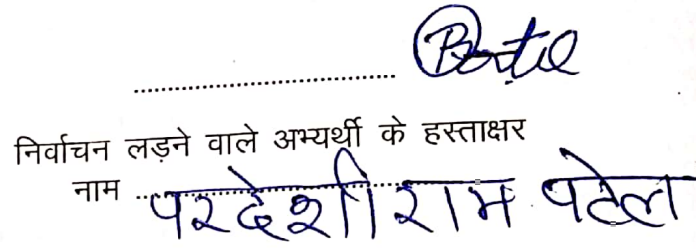 निर्वाचन लड़ने वाले अभ्यर्थी के हस्ताक्षर
नाम परदेशी राम पटेल